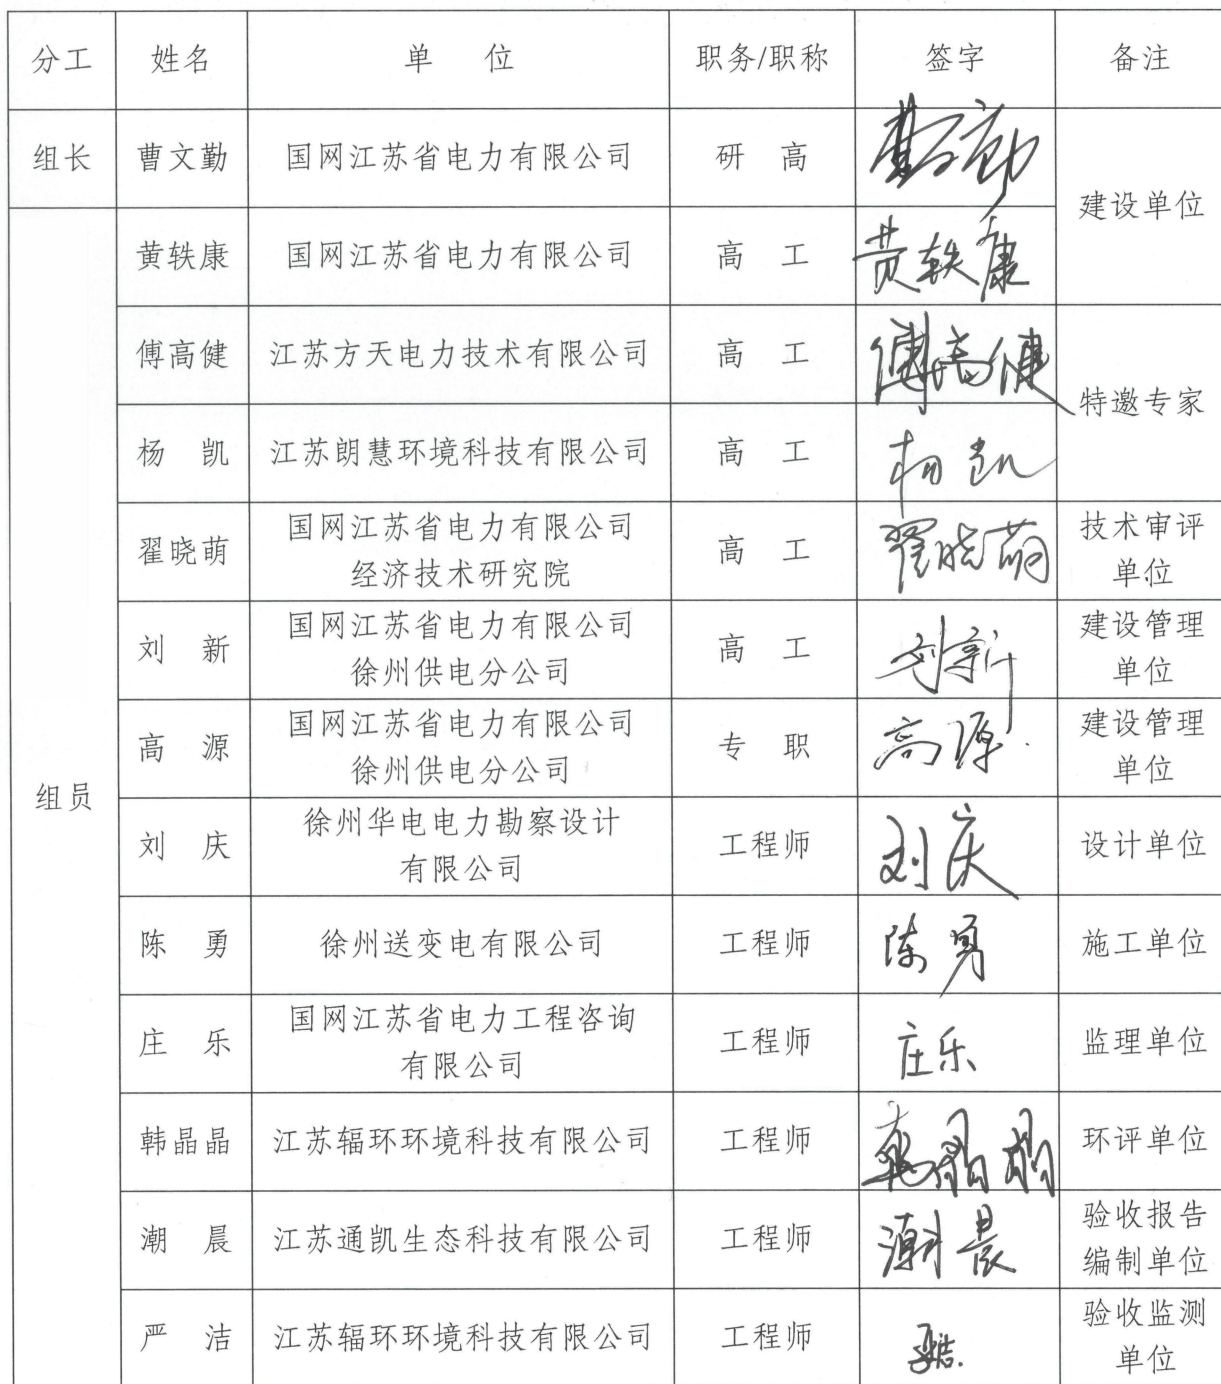 分工 姓名 单 位 职务/职称 签字 备注
组长 曹文勤 国网江苏省电力有限公司 研 高 曹文勤 建设单位
组员 黄轶康 国网江苏省电力有限公司 高 工 黄轶康
傅高健 江苏方天电力技术有限公司 高 工 傅高健 特邀专家
杨 凯 江苏朗慧环境科技有限公司 高 工 杨凯
翟晓萌 国网江苏省电力有限公司 高 工 翟晓萌 技术审评
经济技术研究院 单位
刘 新 国网江苏省电力有限公司 高 工 刘新 建设管理
徐州供电分公司 单位
高 源 国网江苏省电力有限公司 专 职 高源 建设管理
徐州供电分公司 单位
刘 庆 徐州华电电力勘察设计 工程师 刘庆 设计单位
有限公司
陈 勇 徐州送变电有限公司 工程师 陈勇 施工单位
庄 乐 国网江苏省电力工程咨询 工程师 庄乐 监理单位
有限公司
韩晶晶 江苏辐环环境科技有限公司 工程师 韩晶晶 环评单位
潮 晨 江苏通凯生态科技有限公司 工程师 潮晨 验收报告
编制单位
严 洁 江苏辐环环境科技有限公司 工程师 严洁 验收监测
单位